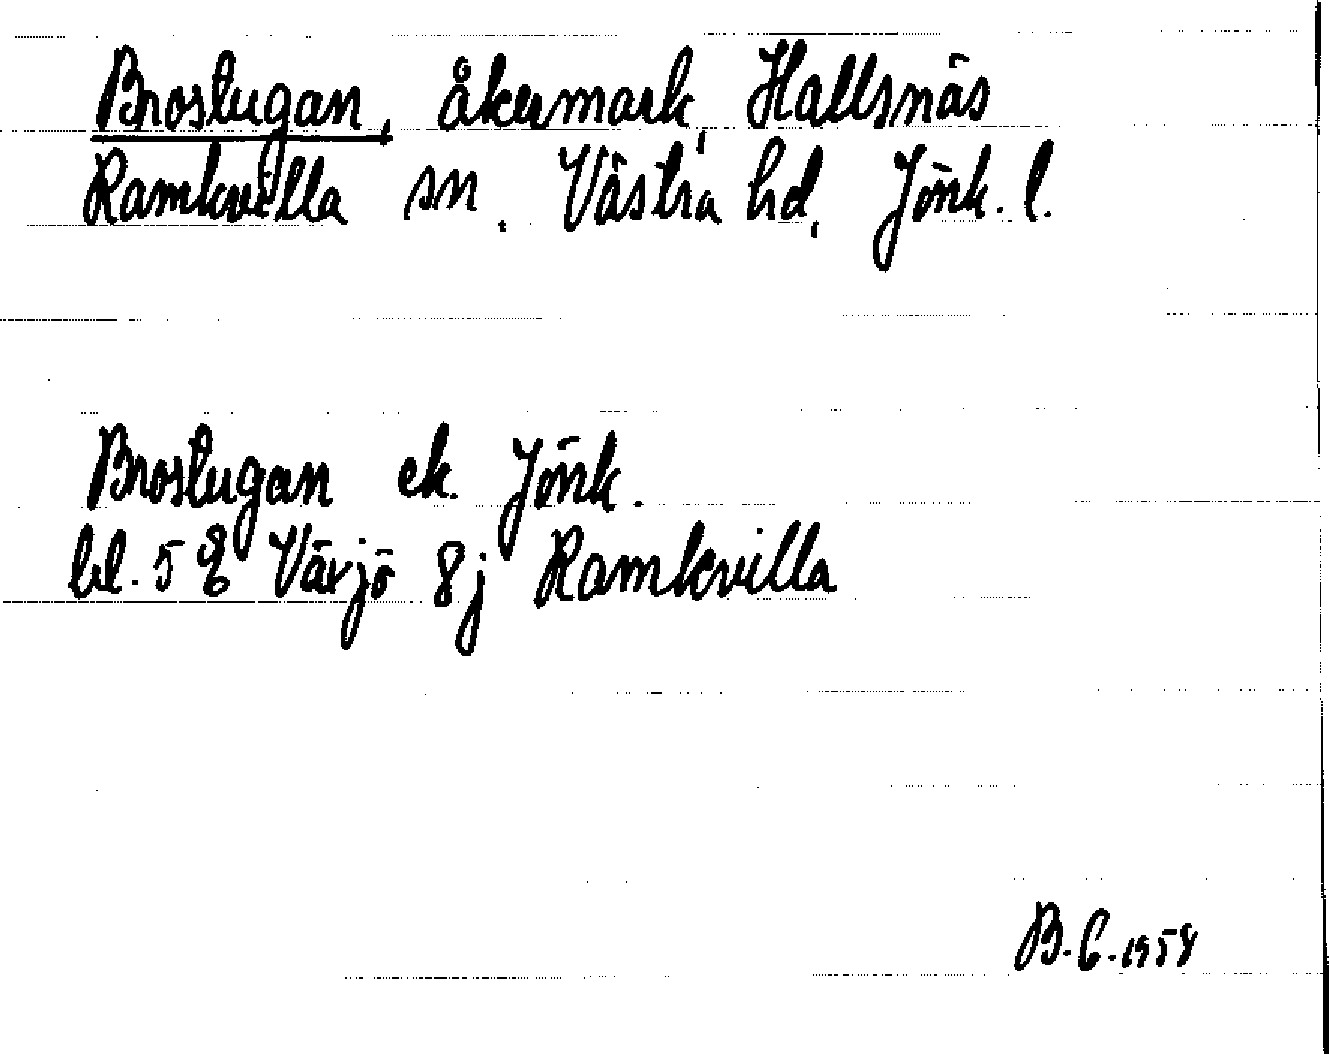 Brostugan, åkermark, Hallsnäs
Ramkvilla sn, Västra hd, Jönk. l.
Brostugan ek. Jönk.
bl. 5 E Växjö 8j Ramkvilla
B. C. 1958